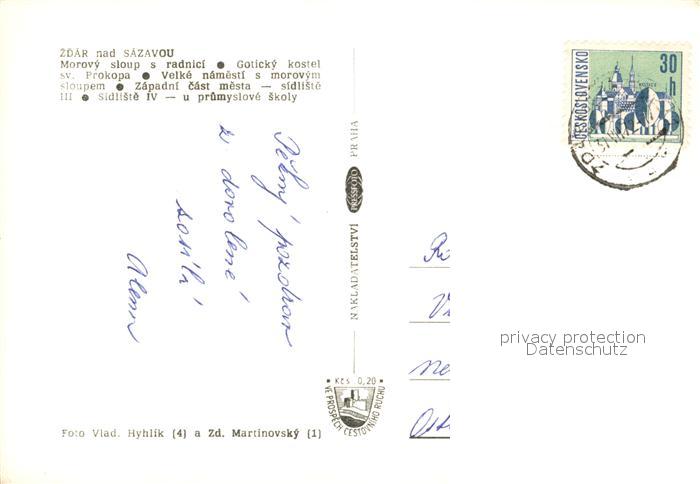 ŽĎÁR nad SÁZAVOU
Morový sloup s radnicí ● Gotický kostel
sv. Prokopa ● Velké náměstí s morovým
sloupem ● Západní část města — sídliště
III ● Sídliště IV — u průmyslové školy
Pěkný pozdrav
z dovolené
Alena
NAKLADATELSTVÍ PRESSFOTO PRAHA
ČESKOSLOVENSKO
30 h
privacy protection
Datenschutz
Kčs 0,20
VE PROSPĚCH CESTOVNÍHO RUCHU
Foto Vlad. Hyhlík (4) a Zd. Martinovský (1)